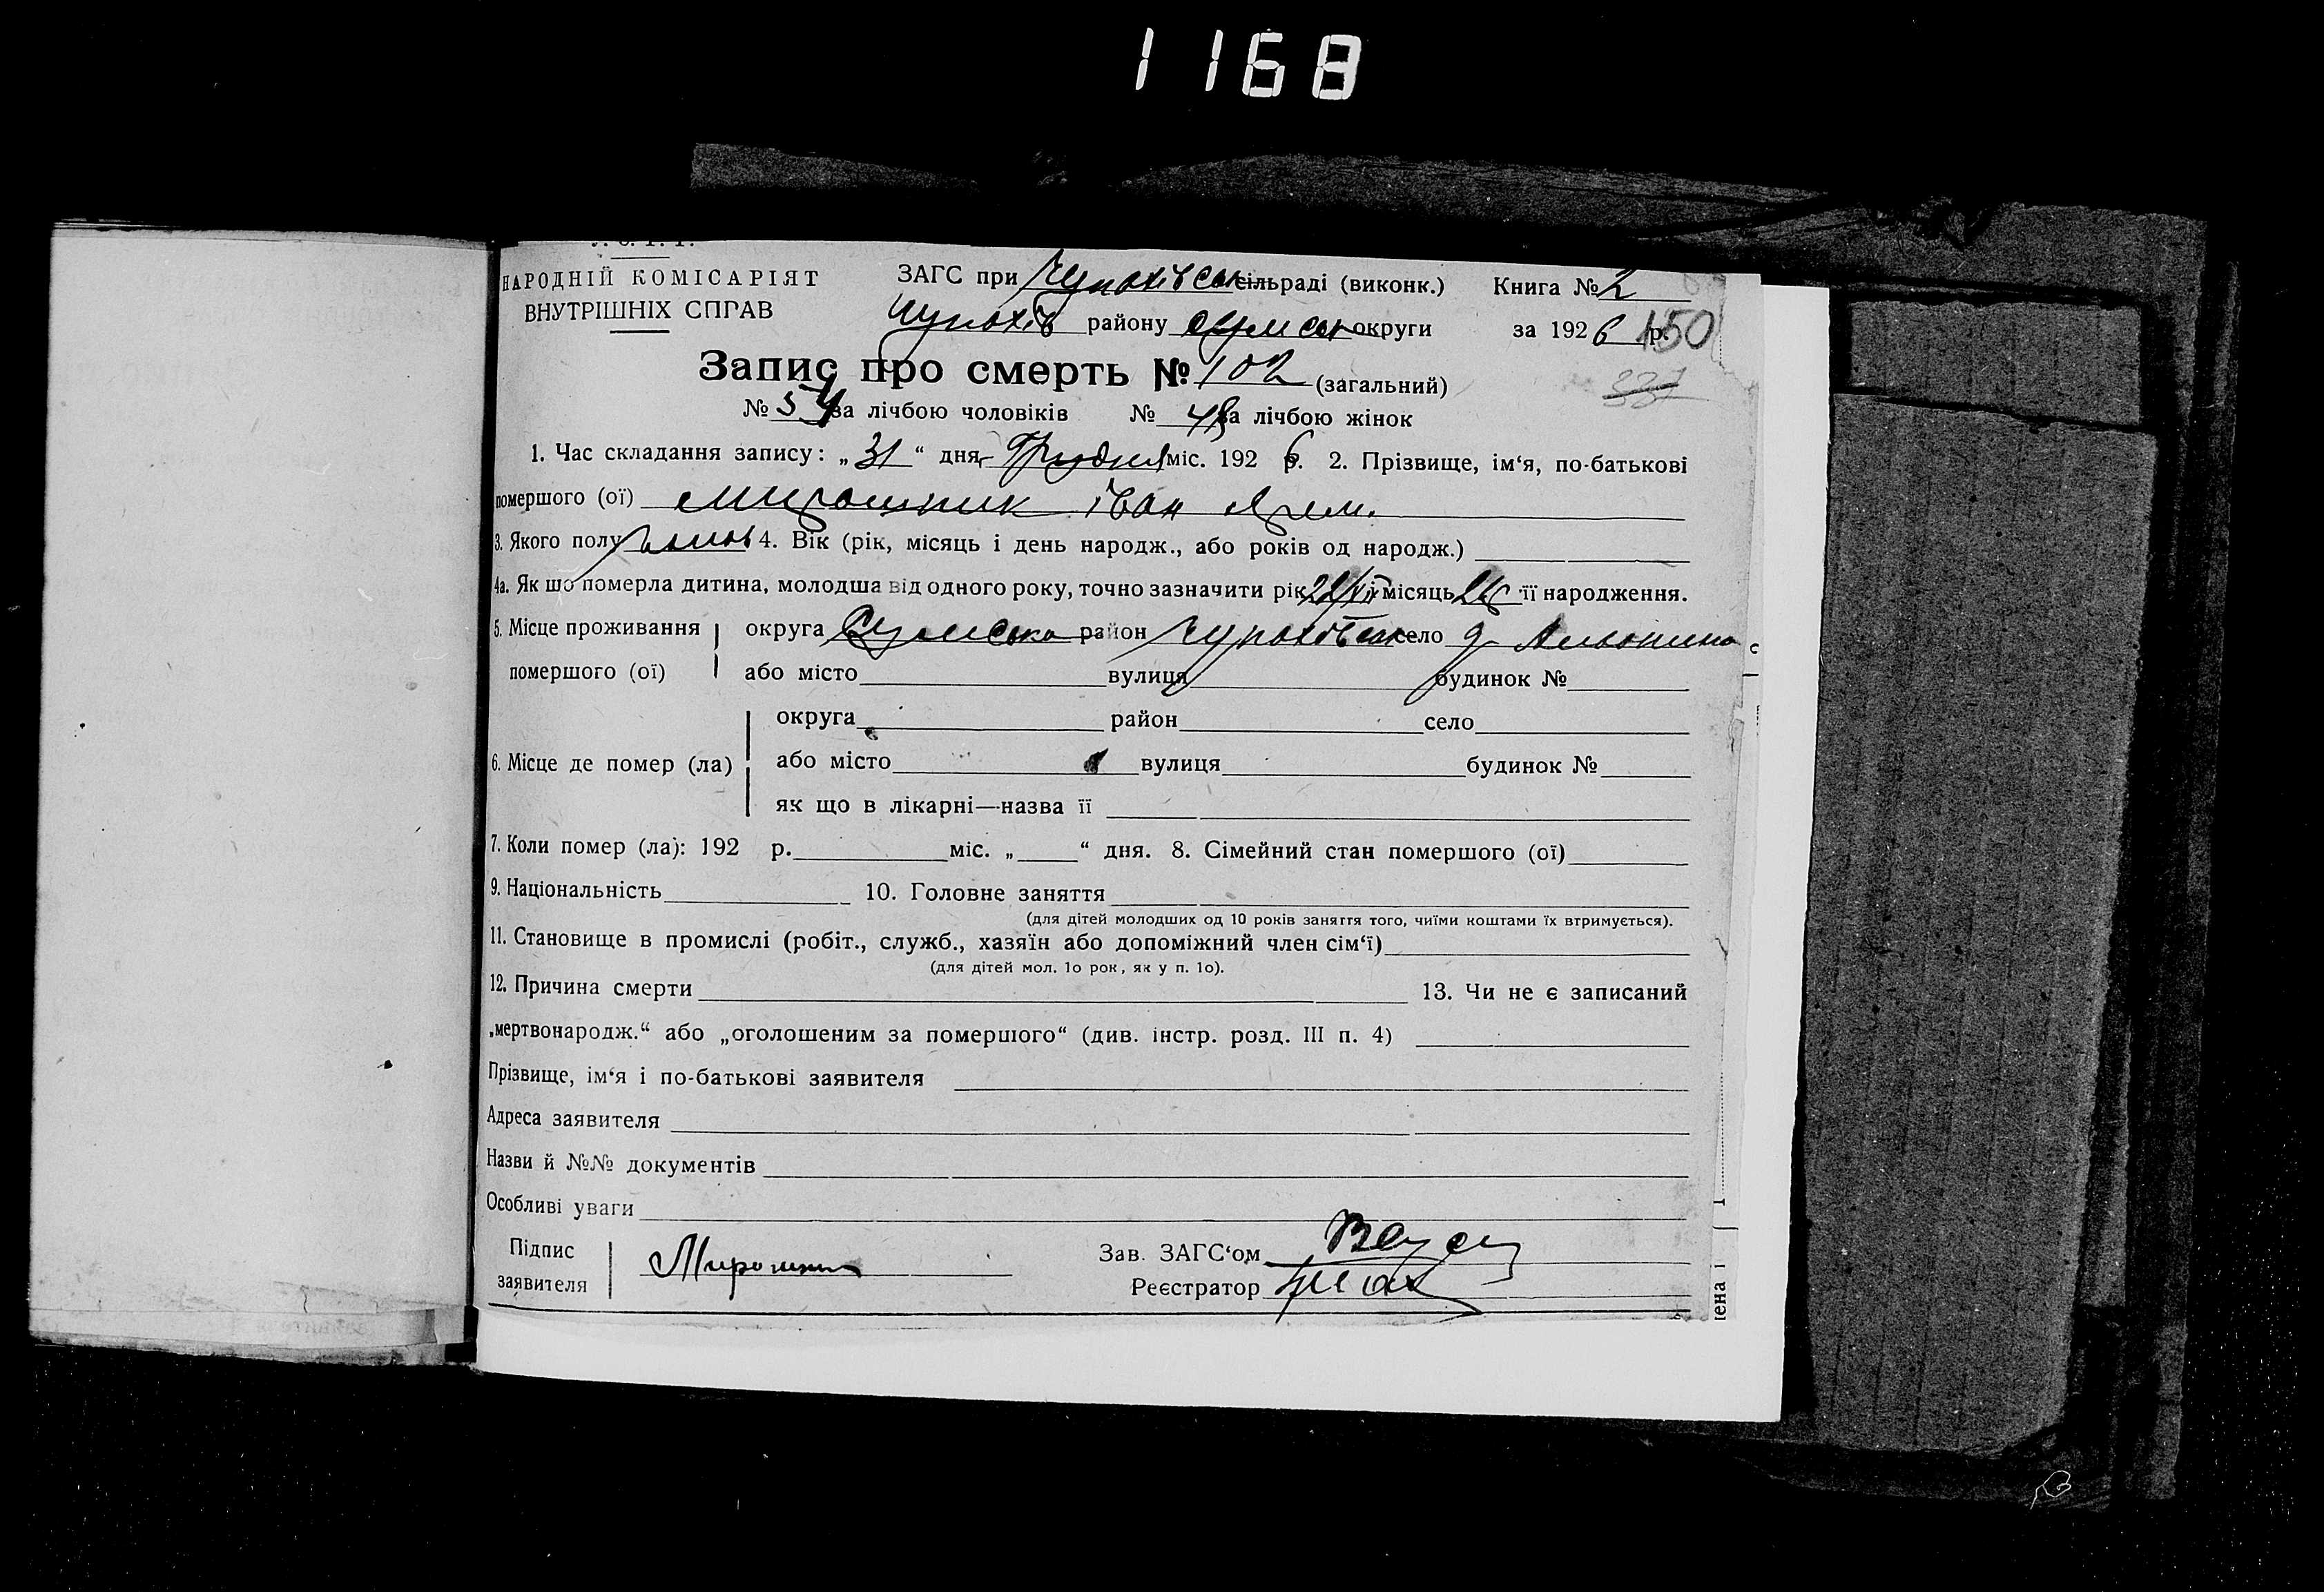 1168
НАРОДНІЙ КОМІСАРІЯТ
ВНУТРІШНІХ СПРАВ
ЗАГС при Чупахівськ сільраді (виконк.) Книга № 2
Чупахів району Сумськ округи за 1926 р. 150
Запис про смерть № 102 (загальний)
337
№ 54 за лічбою чоловіків № 48 за лічбою жінок
1. Час складання запису: „31“ дня Грудня міс. 192 6 р. 2. Прізвище, ім‘я, по-батькові
помершого (ої) Мирошник іван Ярем.
3. Якого полу 4. Вік (рік, місяць і день народж., або років од народж.)
4а. Як що померла дитина, молодша від одного року, точно зазначити рік 22/XII місяць 26 її народження.
5. Місце проживання помершого (ої) округа Сумська район Чупахівськ село
або місто вулиця будинок №
6. Місце де помер (ла) округа район село
або місто вулиця будинок №
як що в лікарні—назва її
7. Коли помер (ла): 192 р. міс. „ “ дня. 8. Сімейний стан помершого (ої)
9. Національність 10. Головне заняття
(для дітей молодших од 10 років заняття того, чиїми коштами їх втримується).
11. Становище в промислі (робіт., служб., хазяїн або допоміжний член сім‘ї)
(для дітей мол. 1о рок, як у п. 1о).
12. Причина смерти 13. Чи не є записаний
„мертвонародж.“ або „оголошеним за помершого“ (див. інстр. розд. III п. 4)
Прізвище, ім‘я і по-батькові заявителя
Адреса заявителя
Назви й №№ документів
Особливі уваги
Підпис заявителя Мирошник
Зав. ЗАГС‘ом
Реєстратор